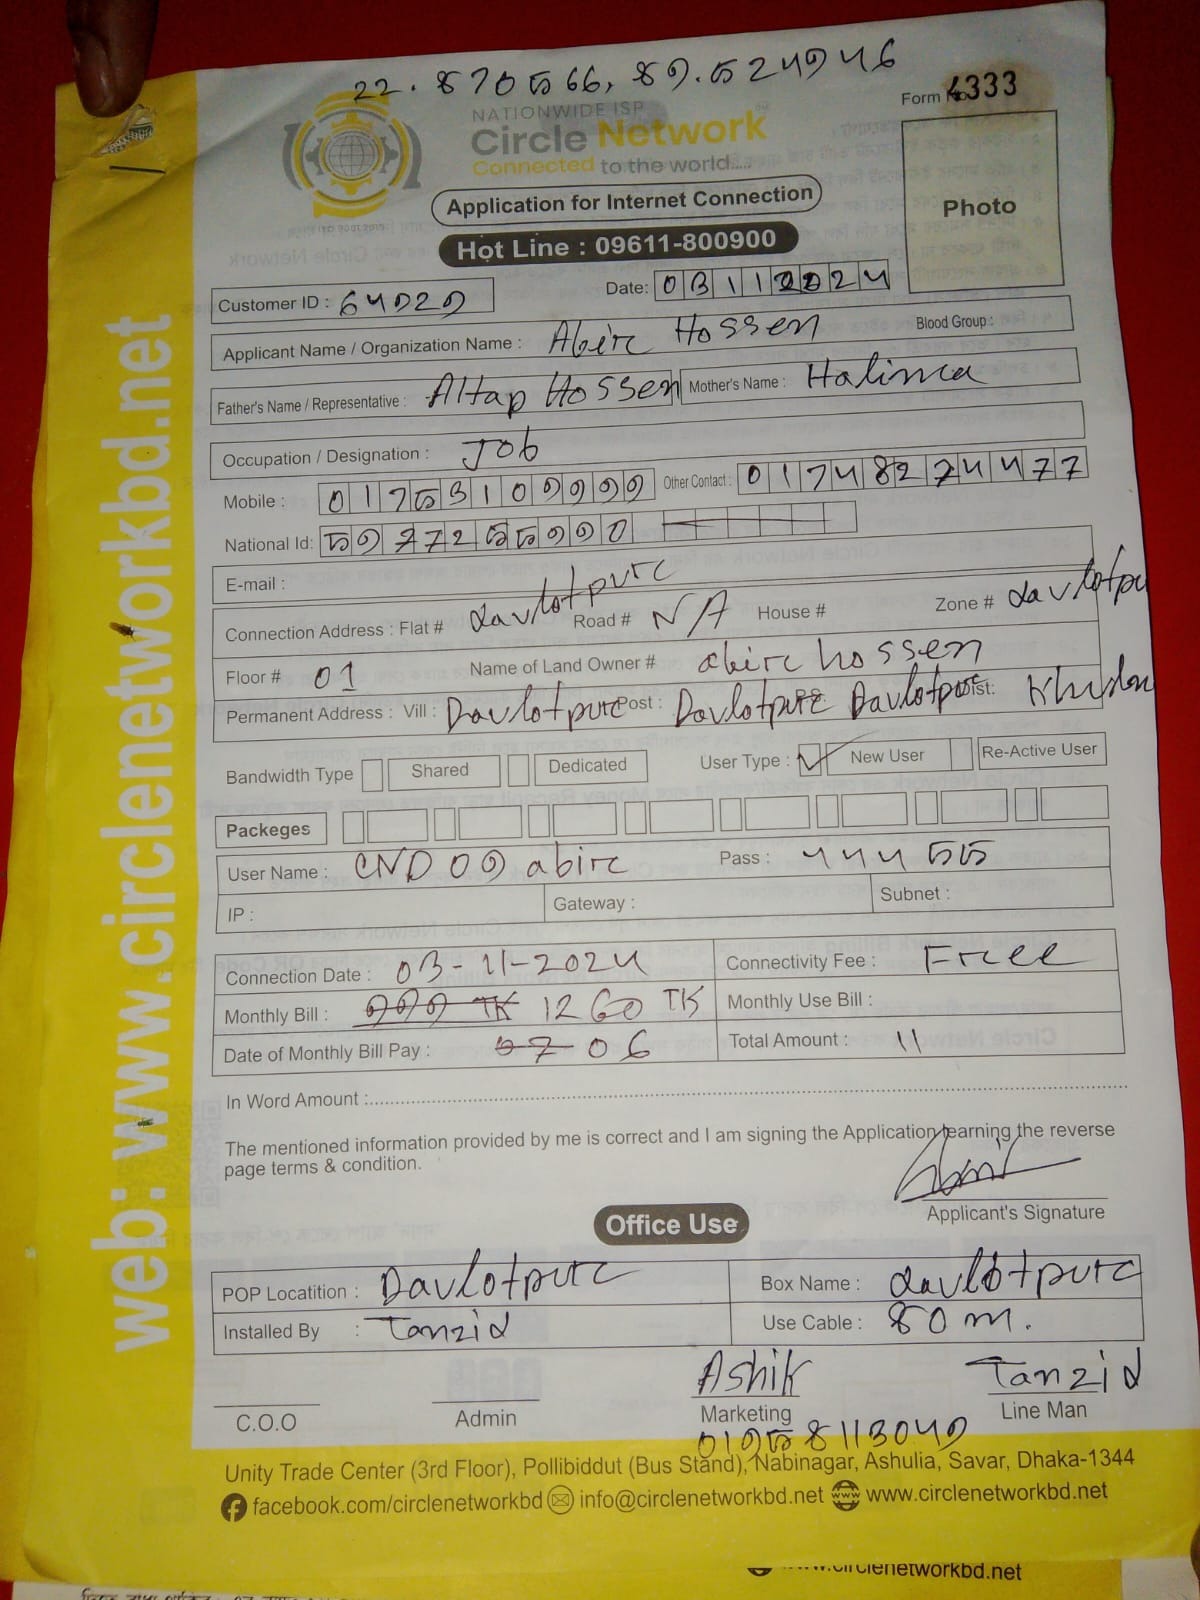 Form No 4333
NATIONWIDE ISP
Circle Network
Connected to the world.....
Application for Internet Connection
Photo
ISO 9001:2015
Hot Line : 09611-800900
Date: 03112024
Customer ID :
Applicant Name / Organization Name : Abir Hossen Blood Group :
Father's Name / Representative : Altap Hossen Mother's Name : Halima
Occupation / Designation : Job
Mobile : Other Contact :
National Id:
E-mail :
Connection Address : Flat # davlotpur Road # N/A House # Zone # davlotpu
Floor # 01 Name of Land Owner # abir hossen
Permanent Address : Vill : Davlotpur Post : Davlotpur Davlotpur Dist:
Bandwidth Type Shared Dedicated User Type : ✓ New User Re-Active User
Packeges
User Name : CND 09 abir Pass : 44455
IP : Gateway : Subnet :
Connection Date : 03-11-2024 Connectivity Fee : Free
Monthly Bill : 999 TK 1260 TK Monthly Use Bill :
Date of Monthly Bill Pay : 06 Total Amount : 11
In Word Amount :
The mentioned information provided by me is correct and I am signing the Application learning the reverse
page terms & condition.
Applicant's Signature
Office Use
POP Locatition : Davlotpur Box Name : davlotpur
Installed By : Tanzid Use Cable : 80 m.
Ashik Tanzid
C.O.O Admin Marketing Line Man
Unity Trade Center (3rd Floor), Pollibiddut (Bus Stand), Nabinagar, Ashulia, Savar, Dhaka-1344
facebook.com/circlenetworkbd info@circlenetworkbd.net www.circlenetworkbd.net
web: www.circlenetworkbd.net
www.circlenetworkbd.net